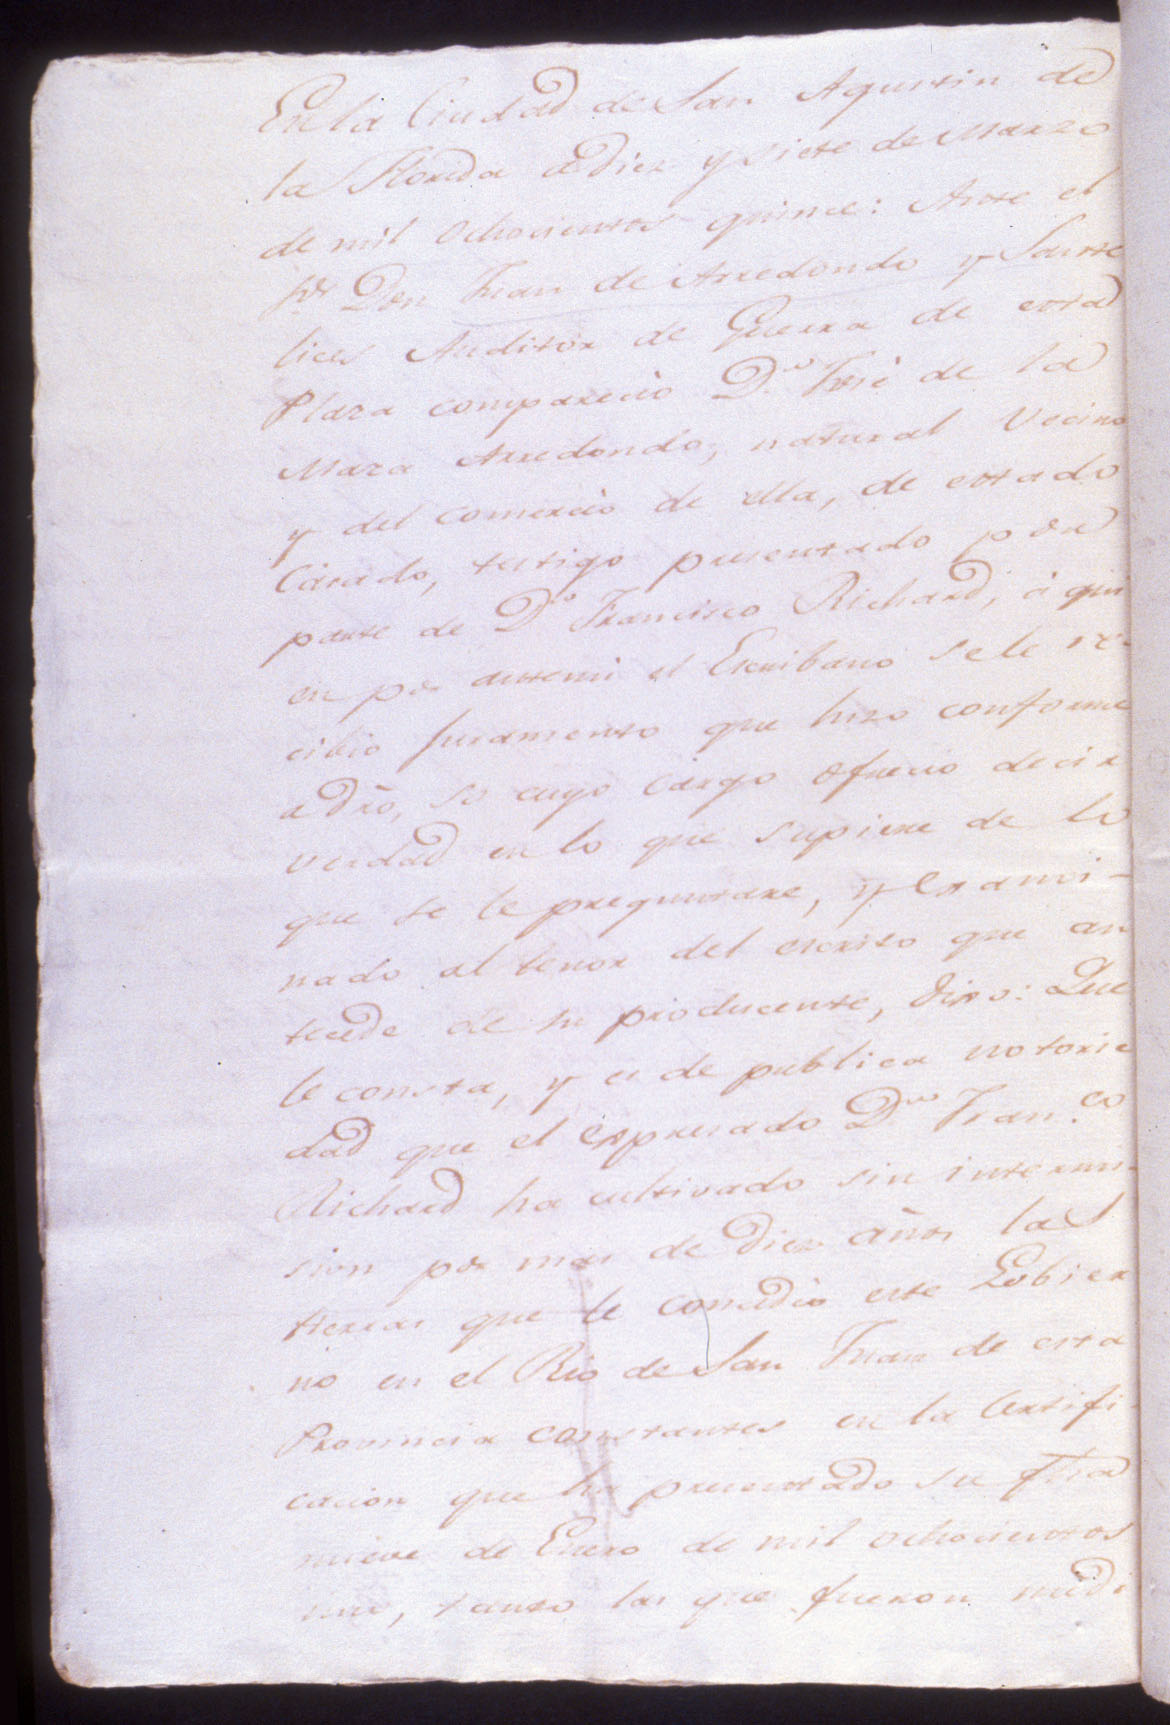 En la Ciudad de San Agustin de
la Florida a Diez y siete de Marzo
de mil ochocientos quince: Ante el
Sor Don Juan de Arredondo y Sante
lices Auditor de Guerra de esta
Plaza comparecio Dn José de la
Maza Arredondo, natural Vecino
y del comercio de ella, de estado
Casado, testigo presentado por
parte de Dn Francisco Richard, á qui
en por antemi el Escribano se le re-
cibio juramento que hizo conforme
a dro, so cuyo cargo ofrecio decir
verdad en lo que supiere de lo
que se le preguntare, y Exami-
nado al tenor del escrito que an
tecede de su producente, Dixo: Que
le consta, y es de publica notorie
dad que el expresado Dn Fran.co
Richard ha cultivado sin intermi-
sion por mas de Diez años las
tierras que le concedió este Gobier
no en el Rio de San Juan de esta
Provincia constantes en la Certifi-
cacion que ha presentado su fha
nueve de Enero de mil ochocientos
uno, tanto las que fueron medi